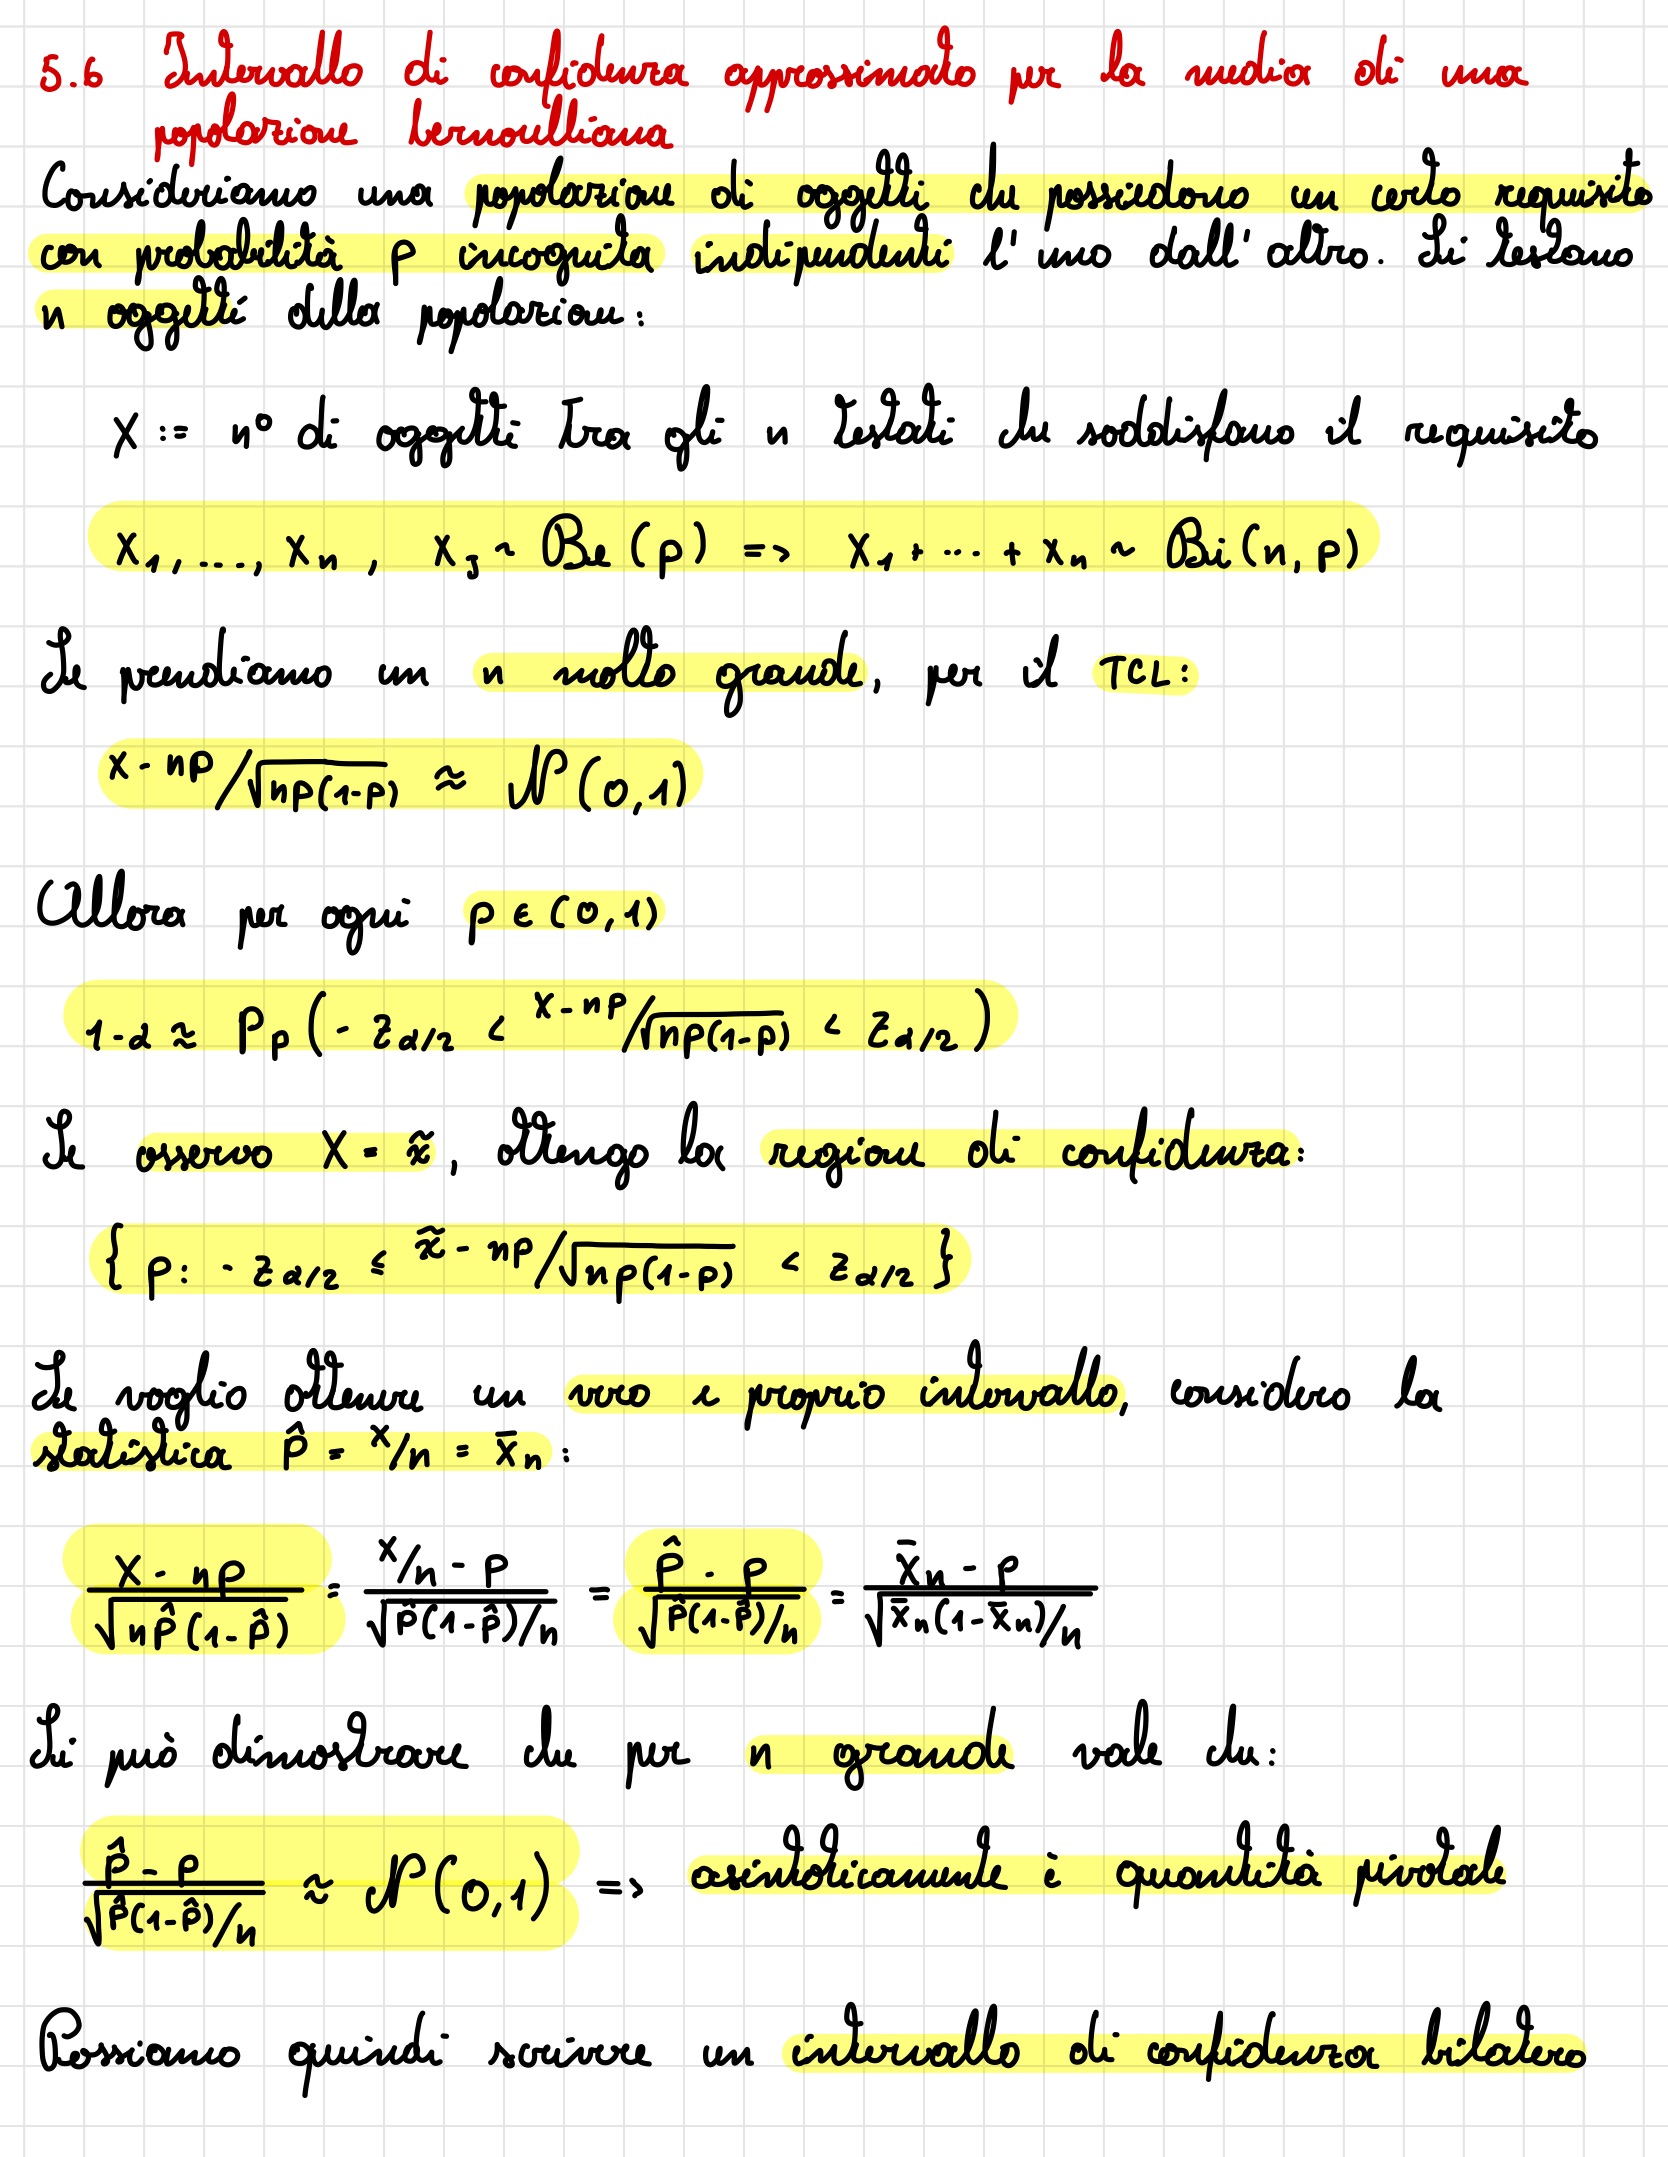 5.6 Intervallo di confidenza approssimato per la media di una
popolazione bernoulliana
Consideriamo una popolazione di oggetti che possiedono un certo requisito
con probabilità p incognita indipendenti l'uno dall'altro. Si testano
n oggetti della popolazione:
X := n° di oggetti tra gli n testati che soddisfano il requisito
X₁, ..., Xₙ , Xⱼ ~ Be(p) => X₁ + ... + Xₙ ~ Bi(n, p)
Se prendiamo un n molto grande, per il TCL:
X - np / √(np(1-p)) ≈ N(0,1)
Allora per ogni p ∈ (0,1)
1-α ≈ P_p ( - z_{α/2} < X - np / √(np(1-p)) < z_{α/2} )
Se osservo X = x̃, ottengo la regione di confidenza:
{ p: - z_{α/2} ≤ x̃ - np / √(np(1-p)) < z_{α/2} }
Se voglio ottenere un vero e proprio intervallo, considero la
statistica p̂ = X/n = X̄ₙ :
(X - np) / √(np̂(1-p̂)) = (X/n - p) / √(p̂(1-p̂)/n) = (p̂ - p) / √(p̂(1-p̂)/n) = (X̄ₙ - p) / √(X̄ₙ(1-X̄ₙ)/n)
Si può dimostrare che per n grande vale che:
(p̂ - p) / √(p̂(1-p̂)/n) ≈ N(0,1) => asintoticamente è quantità pivotale
Possiamo quindi scrivere un intervallo di confidenza bilatero